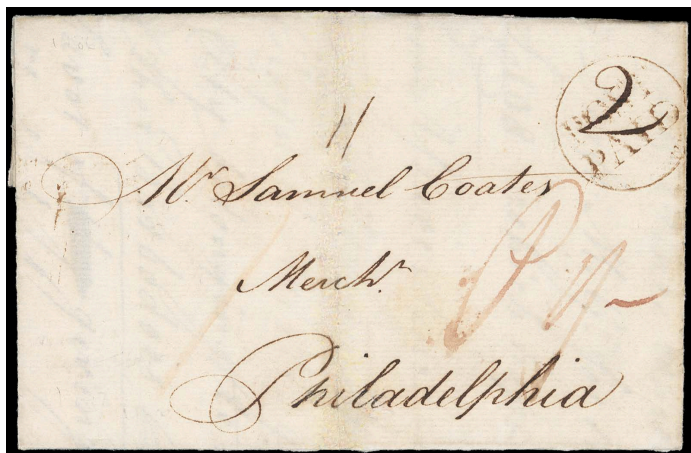 2
POST
PAID
11
Mr. Samuel Coates
Merchtr.
Philadelphia